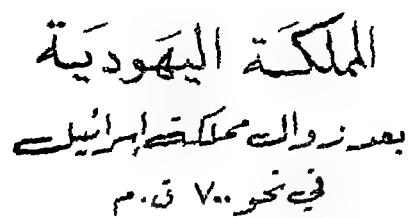 المملكَة اليَهوديَة
بعد زوال مملكة إسرائيل
في نحو ٧٠٠ ق.م